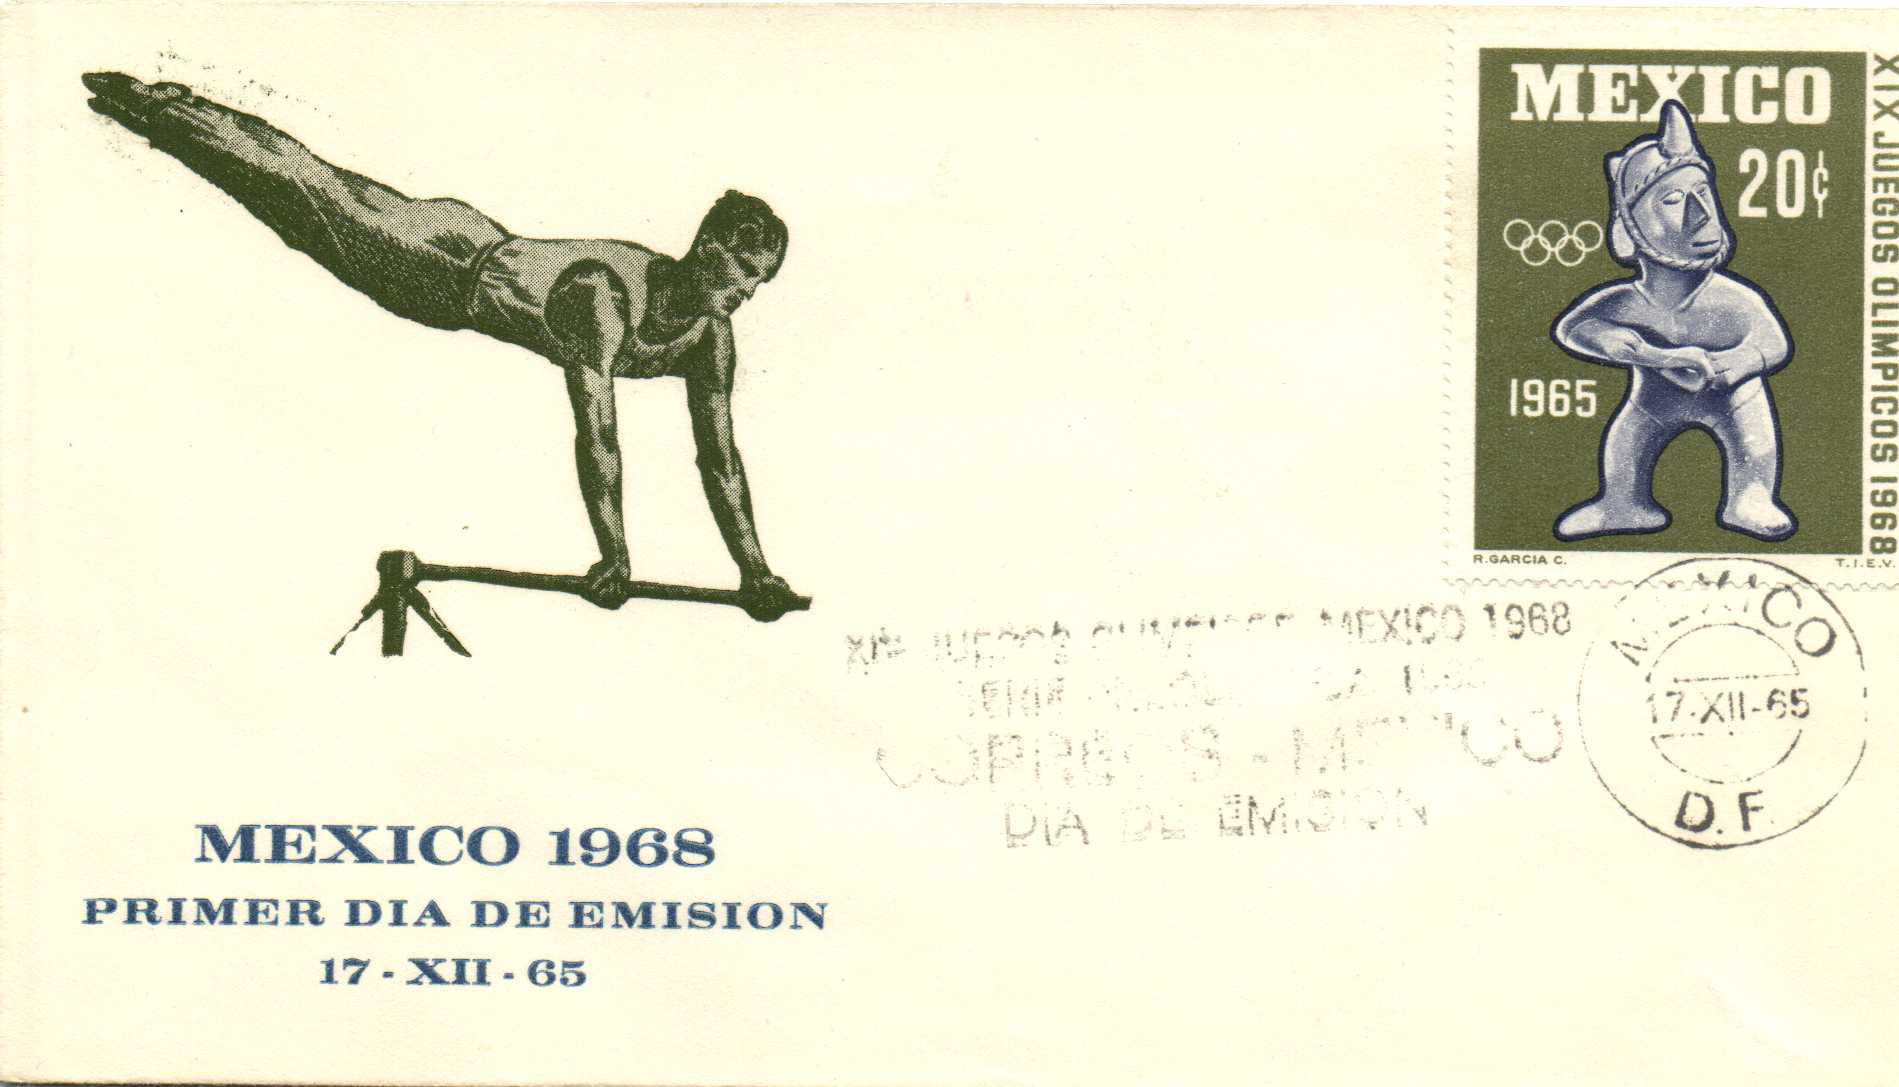 MEXICO
20¢
1965
XIX JUEGOS OLIMPICOS 1968
R. GARCIA C.
T.I.E.V.
JUEGOS OLIMPICOS MEXICO 1968
CORREOS - MEXICO
DIA DE EMISION
MEXICO
17-XII-65
D.F.
MEXICO 1968
PRIMER DIA DE EMISION
17-XII-65